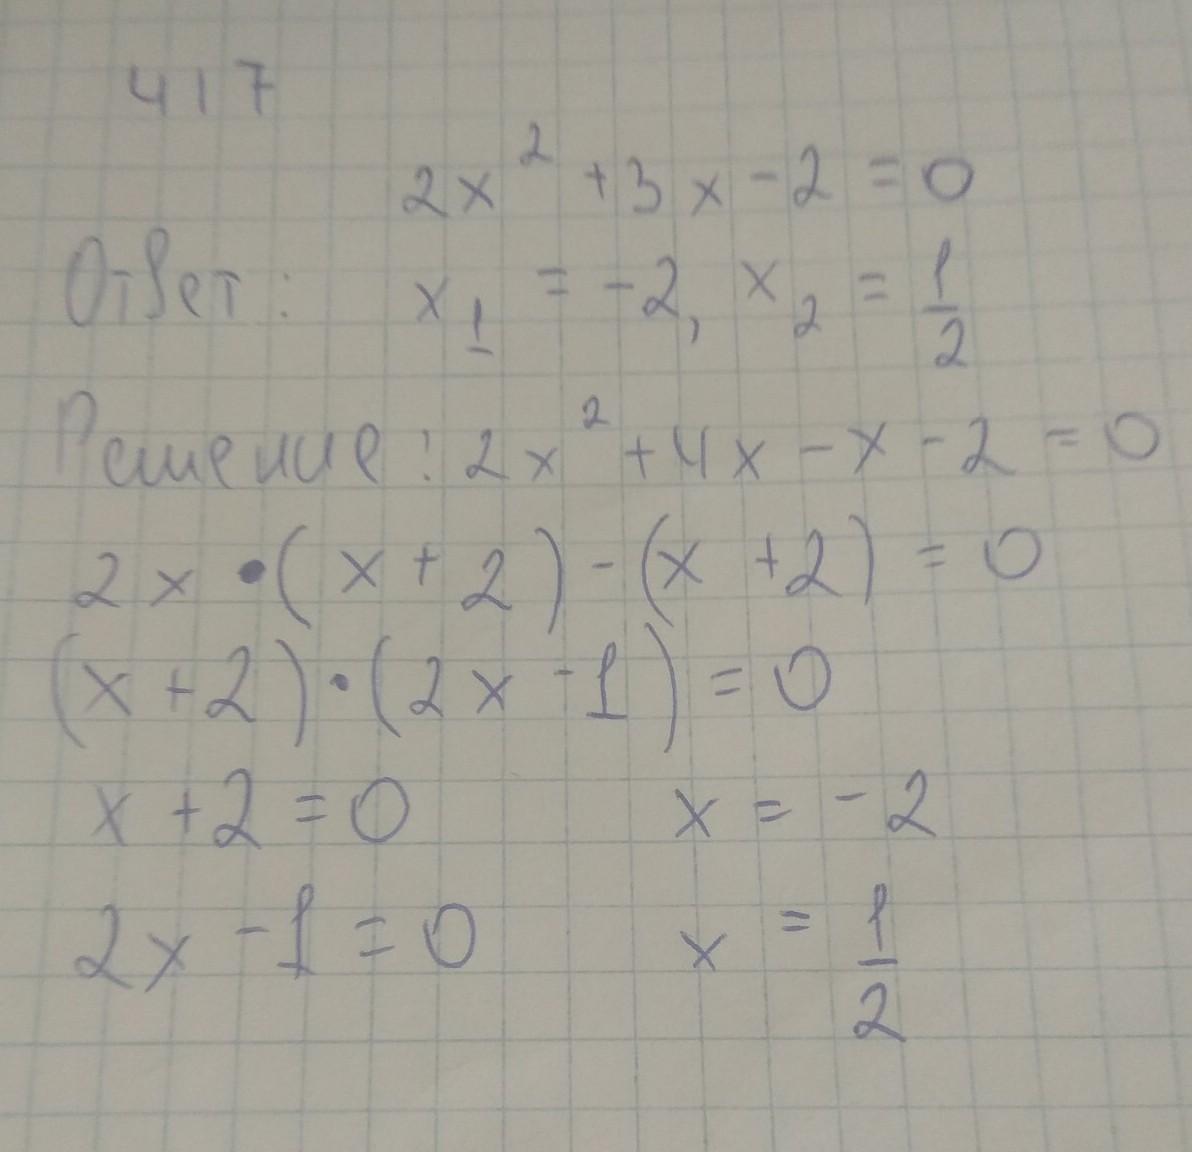 417
2x² + 3x - 2 = 0
Ответ: x₁ = -2, x₂ = 1/2
Решение: 2x² + 4x - x - 2 = 0
2x • (x + 2) - (x + 2) = 0
(x + 2) • (2x - 1) = 0
x + 2 = 0 x = -2
2x - 1 = 0 x = 1/2